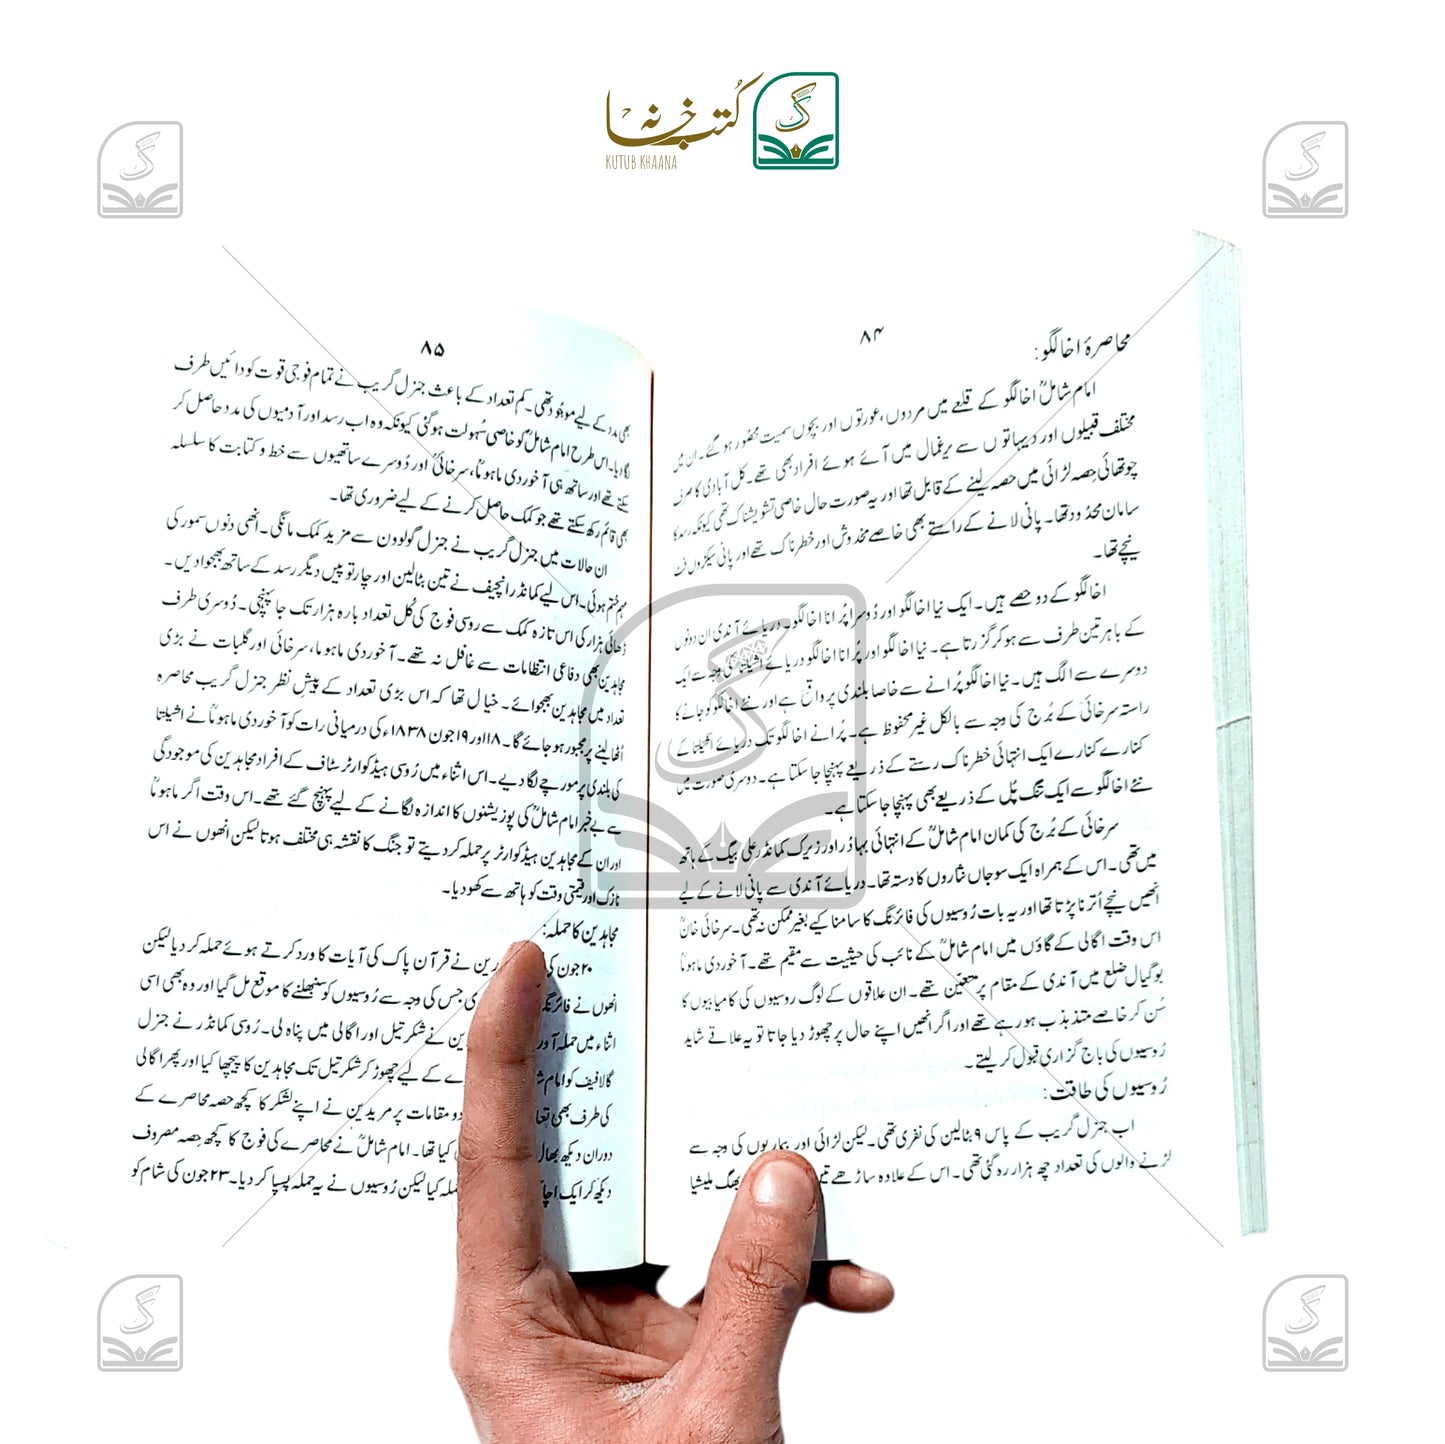 کُتب خانہ
KUTUB KHAANA
۸۴
محاصرۂ اخالگو:
امام شاملؒ اخالگو کے قلعے میں مردوں، عورتوں اور بچوں سمیت محصُور ہو گئے۔ ان میں
مختلف قبیلوں اور دیہاتوں سے یرغمال میں آئے ہوئے افراد بھی تھے۔ کل آبادی کا صرف
چوتھائی حصہ لڑائی میں حصہ لینے کے قابل تھا اور یہ صورت حال خاصی تشویشناک تھی کیونکہ رسد کا
سامان محدُود تھا۔ پانی لانے کے راستے بھی خاصے مخدوش اور خطرناک تھے اور پانی سیکڑوں فٹ
نیچے تھا۔
اخالگو کے دو حصے ہیں۔ ایک نیا اخالگو اور دُوسرا پُرانا اخالگو۔ دریائے آندی ان دونوں
کے باہر تین طرف سے ہو کر گزرتا ہے۔ نیا اخالگو اور پُرانا اخالگو دریائے اشیلتا کی وجہ سے ایک
دوسرے سے الگ ہیں۔ نیا اخالگو پُرانے سے خاصا بلندی پر واقع ہے اور نئے اخالگو کو جانے کا
راستہ سرخائی کے بُرج کی وجہ سے بالکل غیر محفوظ ہے۔ پُرانے اخالگو تک دریائے اشیلتا کے
کنارے کنارے ایک انتہائی خطرناک رستے کے ذریعے پہنچا جا سکتا ہے۔ دوسری صورت میں
نئے اخالگو سے ایک تنگ پُل کے ذریعے بھی پہنچا جا سکتا ہے۔
سرخائی کے بُرج کی کمان امام شاملؒ کے انتہائی بہادُر اور زیرک کمانڈر علی بیگ کے ہاتھ
میں تھی۔ اس کے ہمراہ ایک سو جاں نثاروں کا دستہ تھا۔ دریائے آندی سے پانی لانے کے لیے
انھیں نیچے اُترنا پڑتا تھا اور یہ بات رُوسیوں کی فائرنگ کا سامنا کیے بغیر ممکن نہ تھی۔ سرخائی خانؒ
اس وقت اگالی کے گاؤں میں امام شاملؒ کے نائب کی حیثیت سے مقیم تھے۔ آخوردی ماہوماؒ
بوگیال ضلع میں آندی کے مقام پر متعیّن تھے۔ ان علاقوں کے لوگ روسیوں کی کامیابیوں کا
سُن کر خاصے متذبذب ہو رہے تھے اور اگر انھیں اپنے حال پر چھوڑ دیا جاتا تو یہ علاقے شاید
رُوسیوں کی باج گزاری قبول کر لیتے۔
رُوسیوں کی طاقت:
اب جنرل گریب کے پاس ۹ بٹالین کی نفری تھی۔ لیکن لڑائی اور بیماریوں کی وجہ سے
لڑنے والوں کی تعداد چھ ہزار رہ گئی تھی۔ اس کے علاوہ ساڑھے ملیشیا
۸۵
بھی مدد کے لیے موجُود تھی۔ کم تعداد کے باعث جنرل گریب نے تمام فوجی قوت کو دائیں طرف
لگا دیا۔ اس طرح امام شاملؒ کو خاصی سُہولت ہو گئی کیونکہ وہ اب رسد اور آدمیوں کی مدد حاصل کر
سکتے تھے اور ساتھ ہی آخوردی ماہوماؒ، سرخائیؒ اور دُوسرے ساتھیوں سے خط و کتابت کا سلسلہ
بھی قائم رکھ سکتے تھے جو کمک حاصل کرنے کے لیے ضروری تھا۔
ان حالات میں جنرل گریب نے جنرل گولوون سے مزید کمک مانگی۔ انھی دنوں سمور کی
مہم ختم ہوئی۔ اس لیے کمانڈر انچیف نے تین بٹالین اور چار توپیں دیگر رسد کے ساتھ بھجوا دیں۔
ڈھائی ہزار کی اس تازہ کمک سے روسی فوج کی کُل تعداد بارہ ہزار تک جا پہنچی۔ دُوسری طرف
مجاہدین بھی دفاعی انتظامات سے غافل نہ تھے۔ آخوردی ماہوما، سرخائی اور گلبات نے بڑی
تعداد میں مجاہدین بھجوائے۔ خیال تھا کہ اس بڑی تعداد کے پیشِ نظر جنرل گریب محاصرہ
اُٹھا لینے پر مجبور ہو جائے گا۔ ۱۸ اور ۱۹ جون ۱۸۳۸ء کی درمیانی رات کو آخوردی ماہوماؒ نے اشیلتا
کی بلندی پر مورچے لگا دیے۔ اس اثناء میں رُوسی ہیڈکوارٹر سٹاف کے افراد مجاہدین کی موجودگی
سے بے خبر امام شاملؒ کی پوزیشنوں کا اندازہ لگانے کے لیے پہنچ گئے تھے۔ اس وقت اگر ماہوماؒ
اور ان کے مجاہدین ہیڈکوارٹر پر حملہ کر دیتے تو جنگ کا نقشہ ہی مختلف ہوتا لیکن انھوں نے اس
نازک اور قیمتی وقت کو ہاتھ سے کھو دیا۔
مجاہدین کا حملہ:
۲۰ جون کی رین نے قرآن پاک کی آیات کا ورد کرتے ہوئے حملہ کر دیا لیکن
انھوں نے فائرنگ دی جس کی وجہ سے رُوسیوں کو سنبھلنے کا موقع مل گیا اور وہ بھی اسی
اثناء میں حملہ آور ین نے شکر تیل اور اگالی میں پناہ لی۔ رُوسی کمانڈر نے جنرل
گالافیف کو امام رے کے لیے چھوڑ کر شکر تیل تک مجاہدین کا پیچھا کیا اور پھر اگالی
کی طرف بھی دو مقامات پر مریدین نے اپنے لشکر کا کچھ حصہ محاصرے کے
دوران دیکھ بھال کیا تھا۔ امام شاملؒ نے محاصرے کی فوج کا کچھ حصہ مصروف
دیکھ کر ایک حملہ کیا لیکن رُوسیوں نے یہ حملہ پسپا کر دیا۔ ۲۳ جون کی شام کو